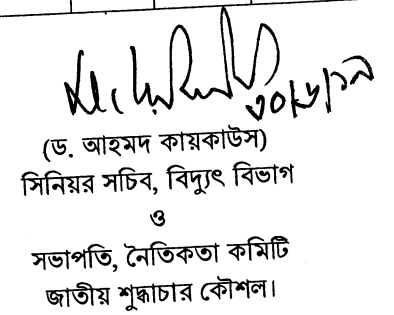 ৩০/৬/১৯
(ড. আহমদ কায়কাউস)
সিনিয়র সচিব, বিদ্যুৎ বিভাগ
ও
সভাপতি, নৈতিকতা কমিটি
জাতীয় শুদ্ধাচার কৌশল।